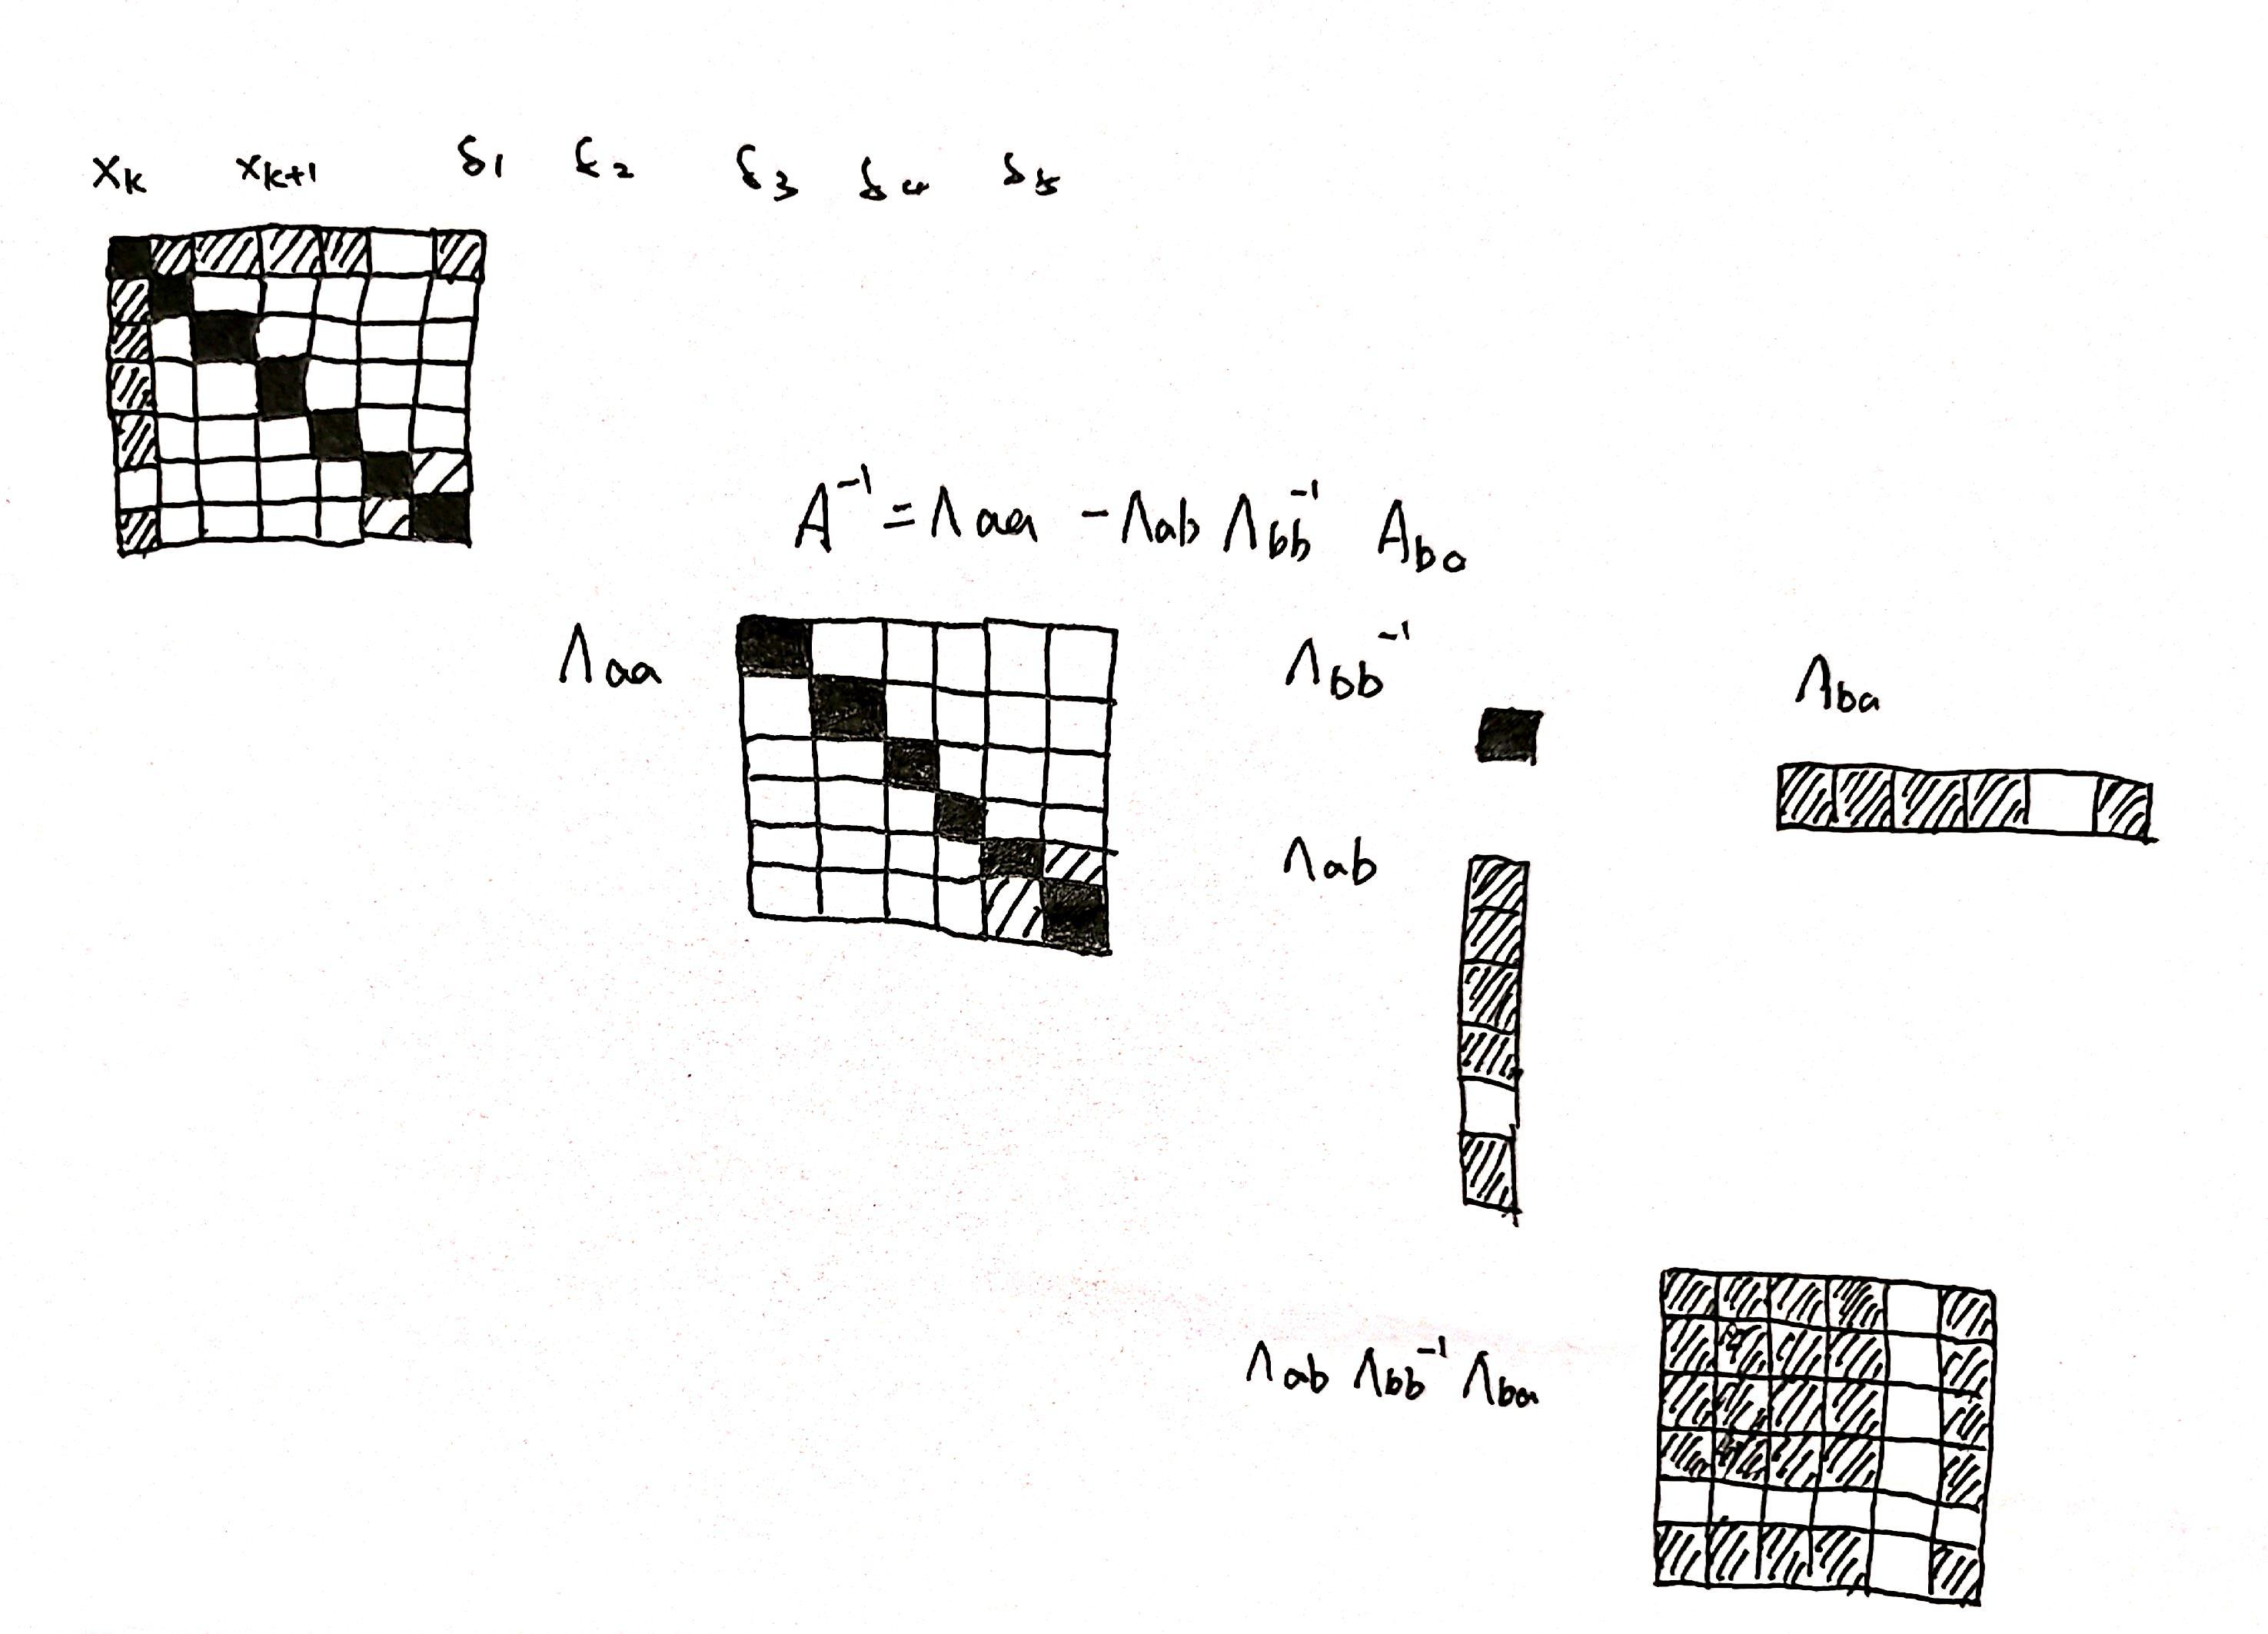 xk xk+1 δ1 δ2 δ3 δ4 δ5
A⁻¹ = Λaa - Λab Λbb⁻¹ Aba
Λaa
Λbb⁻¹
Λba
Λab
Λab Λbb⁻¹ Λba